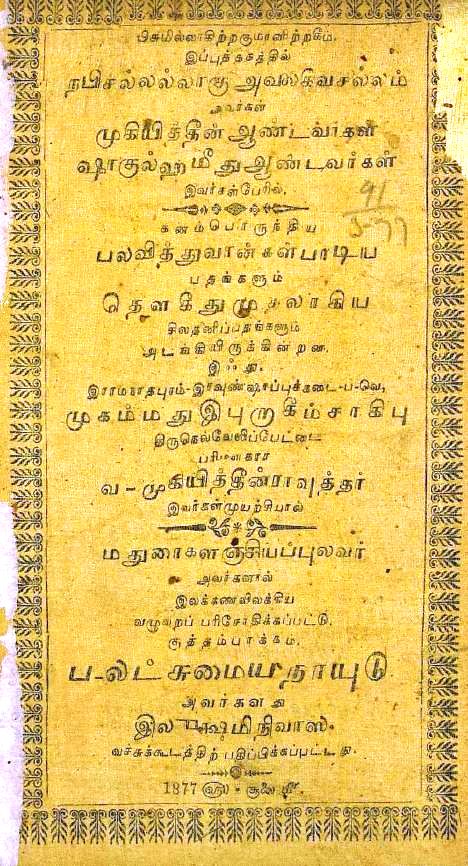 பிசுமில்லாகிற்றகுமானிற்றகீம்.
இப்புத்தகத்தில்
நபிசல்லல்லாகு அலைகிவசல்லம்
அவர்கள்
முகியித்தீன் ஆண்டவர்கள்
ஷாகுல்ஹமீது ஆண்டவர்கள்
இவர்கள்பேரில்,
91
577
கனம்பொருந்திய
பலவித்துவான்கள்பாடிய
பதங்களும்
தௌகீதுமுதலாகிய
சிலதனிப்பதங்களும்
அடங்கியிருக்கின்றன.
இஃது.
இராமநாதபுரம்-இரவுண்ஷாப்புக்கடை-ப-வெ,
முகம்மதுஇபுறுகீம்சாகிபு
திருநெல்வேலிப்பேட்டை
வ-முகியித்தீன்ராவுத்தர்
இவர்கள்முயற்சியால்
மதுரைகளஞ்சியப்புலவர்
அவர்களால்
இலக்கணவிலக்கிய
வழுவறப் பரிசோதிக்கப்பட்டு,
சூத்தம்பாக்கம்,
ப-லட்சுமையநாயுடு
அவர்களது
இலக்ஷுமிநிவாஸ
வச்சுக்கூடத்திற் பதிப்பிக்கப்பட்டது.
1877 ௵ - சூலை ௴.